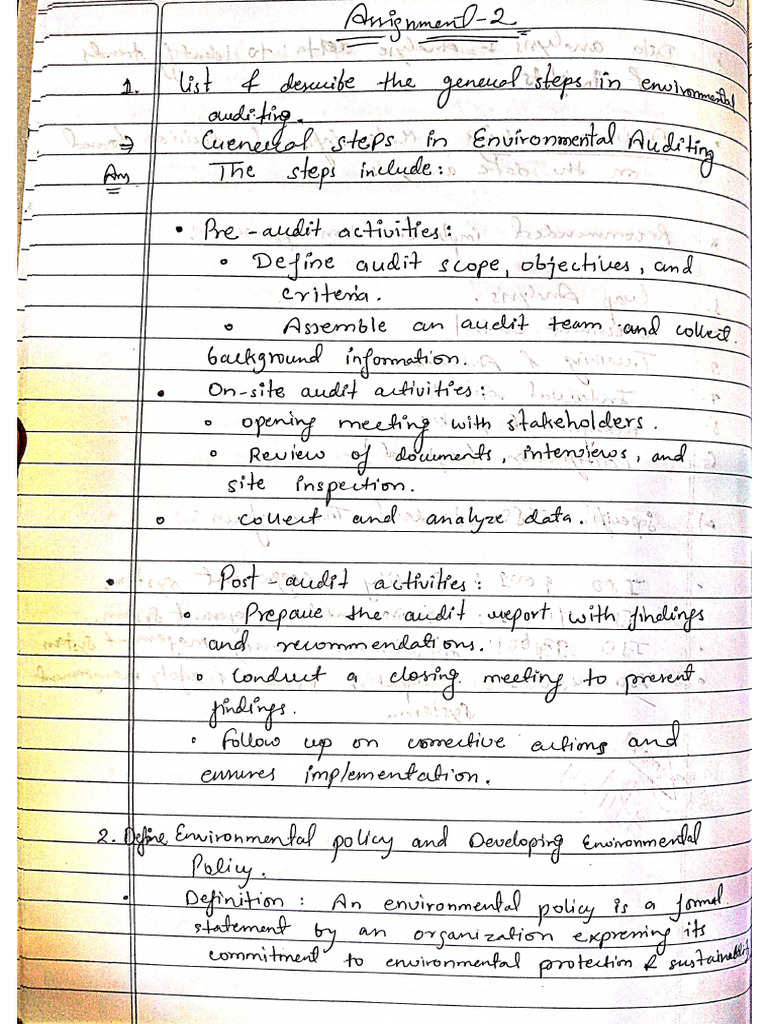 Assignment-2
1. List & describe the general steps in environmental
auditing.
⇒ General steps in Environmental Auditing
Ans The steps include:
• Pre-audit activities:
• Define audit scope, objectives, and
criteria.
○ Assemble an audit team and collect
background information.
• On-site audit activities:
○ opening meeting with stakeholders.
○ Review of documents, interviews, and
site inspection.
○ collect and analyze data.
• Post-audit activities:
• Prepare the audit report with findings
and recommendations.
○ Conduct a closing meeting to present
findings.
• Follow up on corrective actions and
ensures implementation.
2. Define Environmental policy and Developing Environmental
Policy.
• Definition: An environmental policy is a formal
statement by an organization expressing its
commitment to environmental protection & sustainability